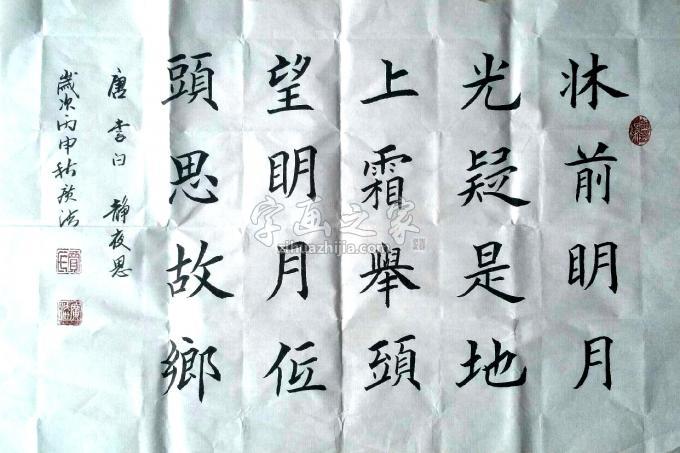 牀前眀月
光疑是地
上霜舉頭
望眀月低
頭思故鄉
唐李白 静夜思
歲次丙申秋廣
字画之家
zihuazhijia.com